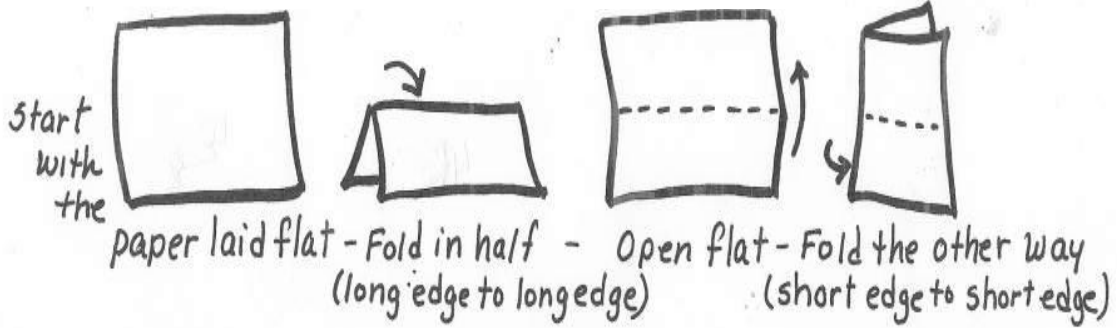 start
with
the
paper laid flat - Fold in half - Open flat - Fold the other way
(long edge to long edge) (short edge to short edge)